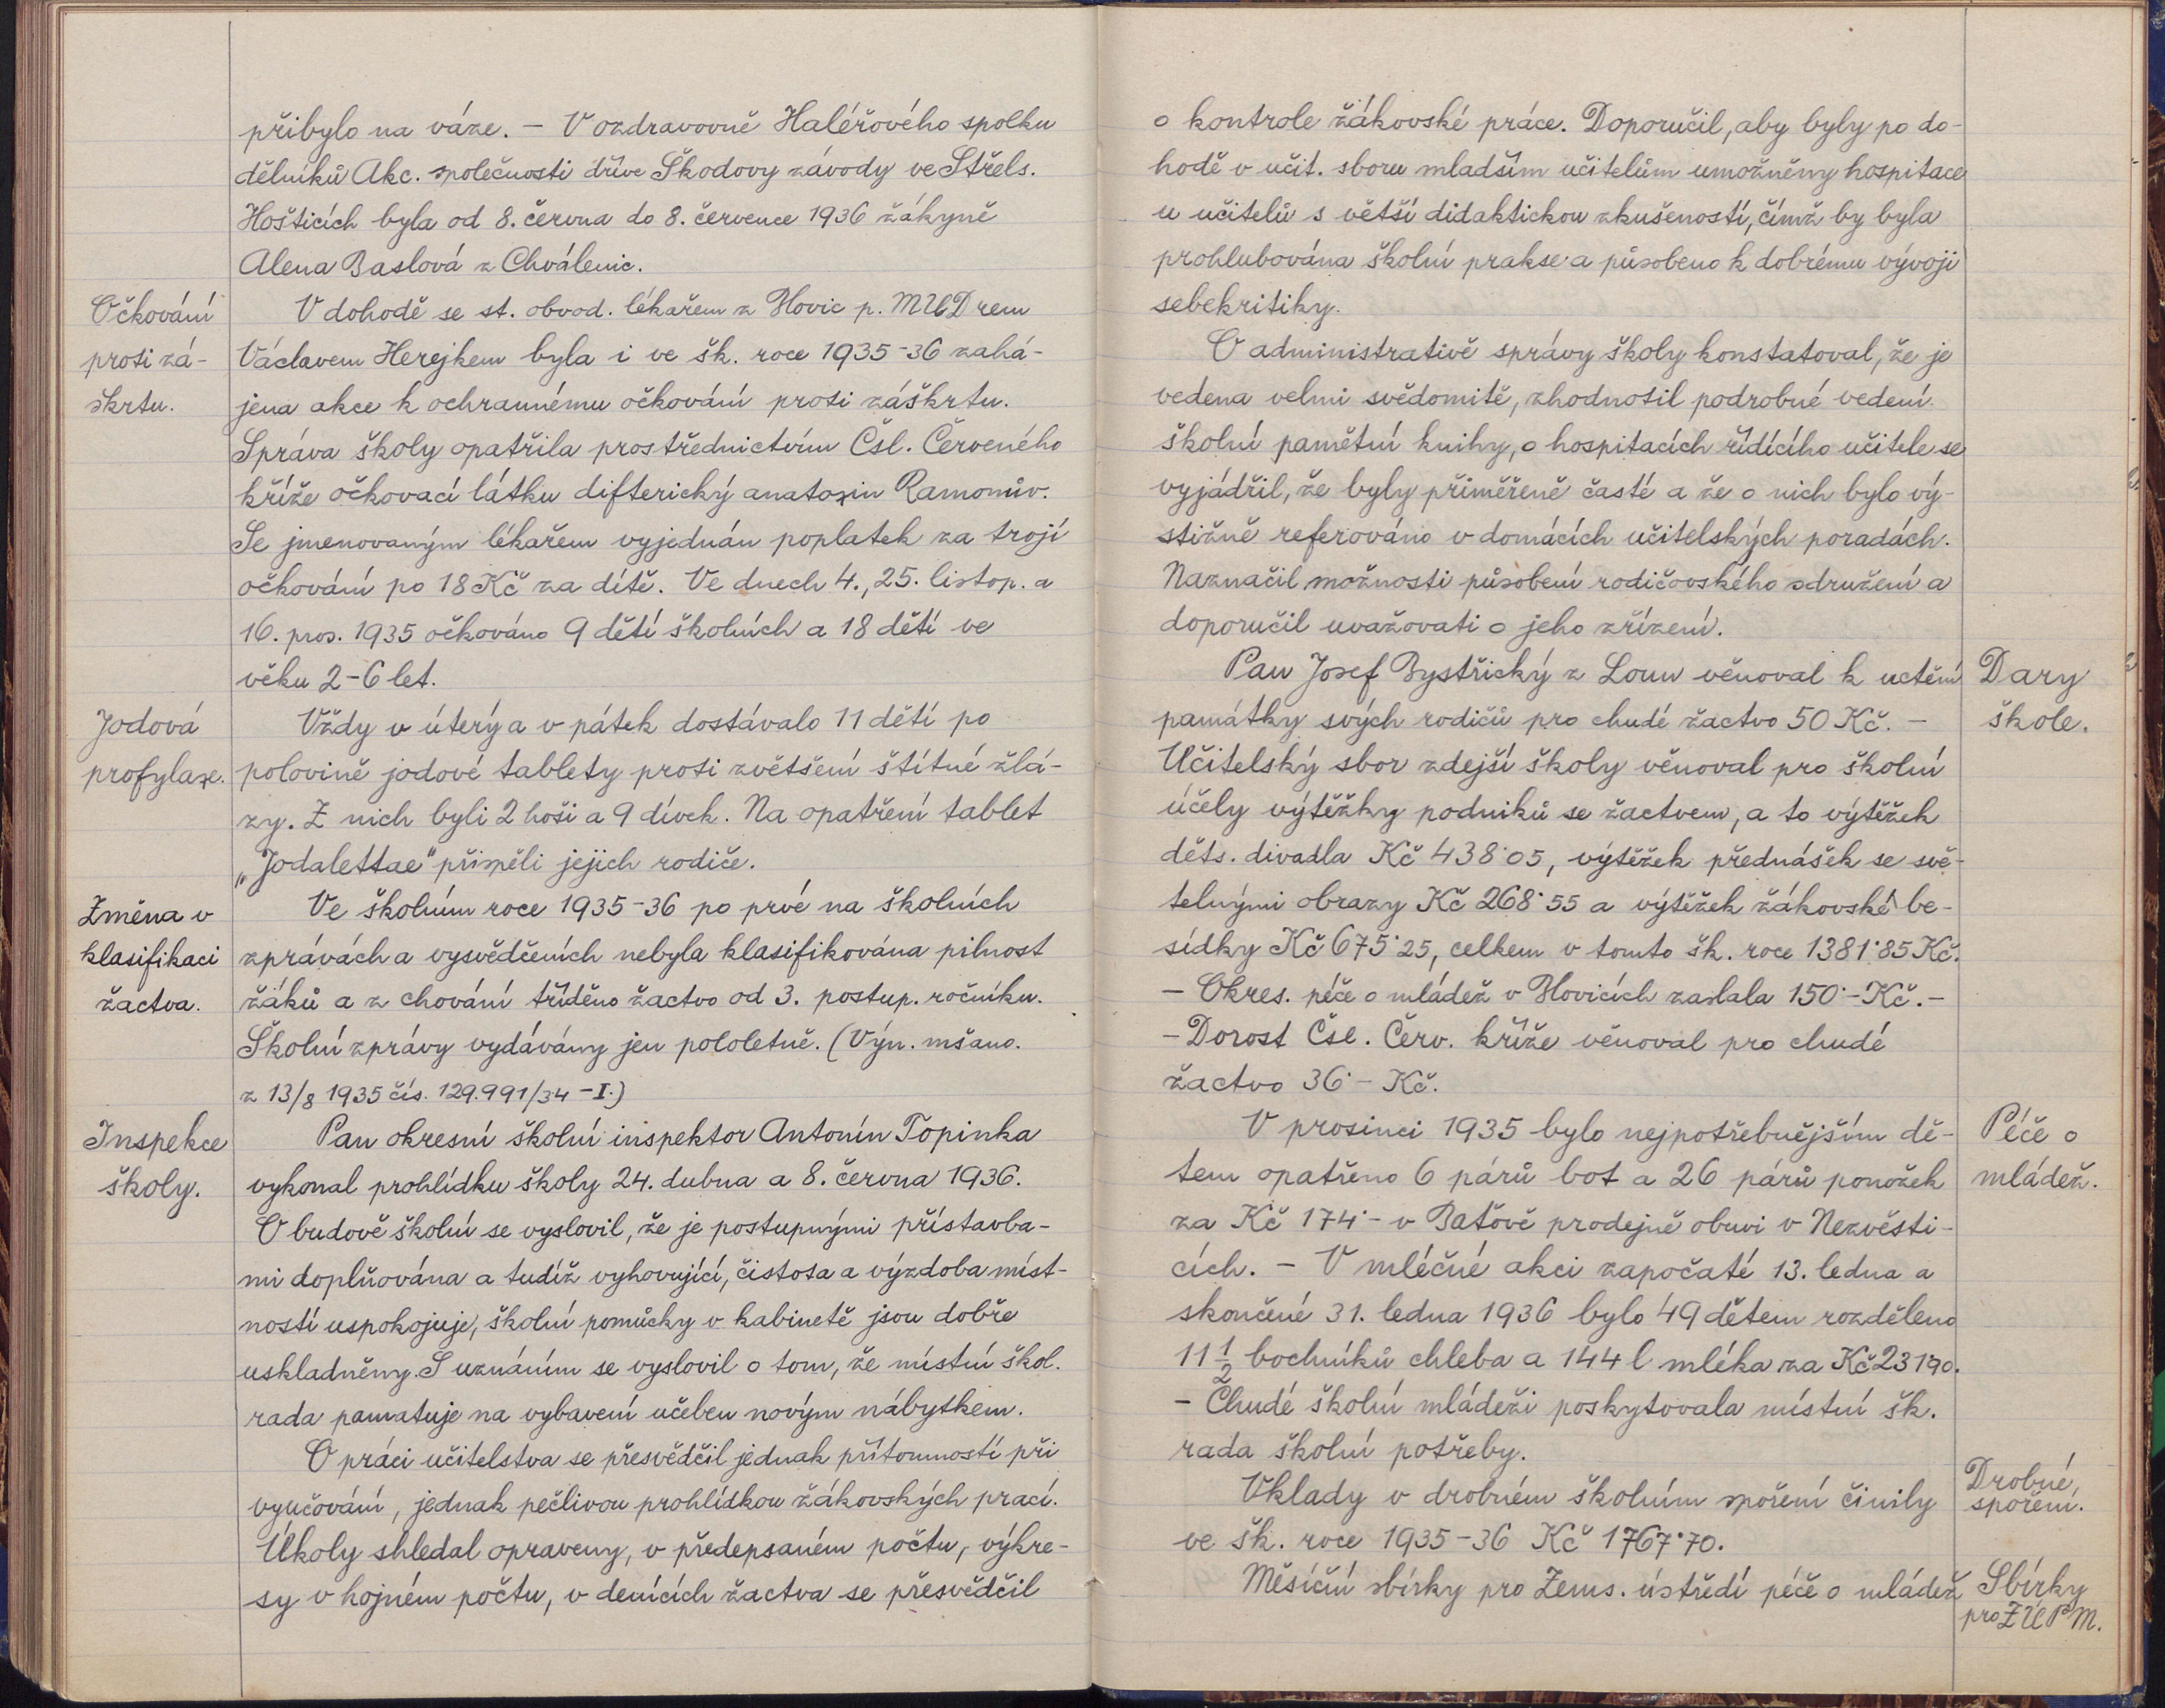 přibylo na váze. – V ozdravovně Haléřového spolku
dělníků Akc. společnosti dříve Škodovy závody ve Střels.
Hošticích byla od 8. června do 8. července 1936 žákyně
Alena Baslová z Chválenic.
Očkování
proti zá-
škrtu.
V dohodě se st. obvod. lékařem z Blovic p. MUDrem
Václavem Herejkem byla i ve šk. roce 1935-36 zahá-
jena akce k ochrannému očkování proti záškrtu.
Správa školy opatřila prostřednictvím Čsl. Červeného
kříže očkovací látku difterický anatoxin Ramonův.
Se jmenovaným lékařem vyjednán poplatek za trojí
očkování po 18 Kč za dítě. Ve dnech 4., 25. listop. a
16. pros. 1935 očkováno 9 dětí školních a 18 dětí ve
věku 2-6 let.
Jodová
profylaxe.
Vždy v úterý a v pátek dostávalo 11 dětí po
polovině jodové tablety proti zvětšení štítné žlá-
zy. Z nich byli 2 hoši a 9 dívek. Na opatření tablet
„Jodalettae“ přispěli jejich rodiče.
Změna v
klasifikaci
žactva.
Ve školním roce 1935-36 po prvé na školních
zprávách a vysvědčeních nebyla klasifikována pilnost
žáků a z chování tříděno žactvo od 3. postup. ročníku.
Školní zprávy vydávány jen pololetně. (Výn. mšano.
z 13/8 1935 čís. 129.991/34 - I.)
Inspekce
školy.
Pan okresní školní inspektor Antonín Topinka
vykonal prohlídku školy 24. dubna a 8. června 1936.
O budově školní se vyslovil, že je postupnými přístavba-
mi doplňována a tudíž vyhovující, čistota a výzdoba míst-
ností uspokojuje, školní pomůcky v kabinetě jsou dobře
uskladněny. S uznáním se vyslovil o tom, že místní škol.
rada pamatuje na vybavení učeben novým nábytkem.
O práci učitelstva se přesvědčil jednak přítomností při
vyučování, jednak pečlivou prohlídkou žákovských prací.
Úkoly shledal opraveny, v předepsaném počtu, výkre-
sy v hojném počtu, v denících žactva se přesvědčil
o kontrole žákovské práce. Doporučil, aby byly po do-
hodě v učit. sboru mladším učitelům umožněny hospitace
u učitelů s větší didaktickou zkušeností, čímž by byla
prohlubována školní prakse a působeno k dobrému vývoji
sebekritiky.
O administrativě správy školy konstatoval, že je
vedena velmi svědomitě, zhodnotil podrobné vedení
školní pamětní knihy, o hospitacích řídícího učitele se
vyjádřil, že byly přiměřeně časté a že o nich bylo vý-
stižně referováno v domácích učitelských poradách.
Naznačil možnosti působení rodičovského sdružení a
doporučil uvažovati o jeho zřízení.
Pan Josef Bystřický z Loun věnoval k uctění
památky svých rodičů pro chudé žactvo 50 Kč. –
Učitelský sbor zdejší školy věnoval pro školní
účely výtěžky podniků se žactvem, a to výtěžek
děts. divadla Kč 438·05, výtěžek přednášek se svě-
telnými obrazy Kč 268·55 a výtěžek žákovské be-
sídky Kč 675·25, celkem v tomto šk. roce 1381·85 Kč.
– Okres. péče o mládež v Blovicích zaslala 150·- Kč. –
– Dorost Čsl. Červ. kříže věnoval pro chudé
žactvo 36·- Kč.
Dary
škole.
V prosinci 1935 bylo nejpotřebnějším dě-
tem opatřeno 6 párů bot a 26 párů ponožek
za Kč 174·- v Baťově prodejně obuvi v Nezvěsti-
cích. – V mléčné akci započaté 13. ledna a
skončené 31. ledna 1936 bylo 49 dětem rozděleno
11 1/2 bochníků chleba a 144 l mléka za Kč 231·90.
– Chudé školní mládeži poskytovala místní šk.
rada školní potřeby.
Péče o
mládež.
Vklady v drobném školním spoření činily
ve šk. roce 1935-36 Kč 1767·70.
Drobné
spoření.
Měsíční sbírky pro Zems. ústředí péče o mládež
Sbírky
pro ZÚPM.